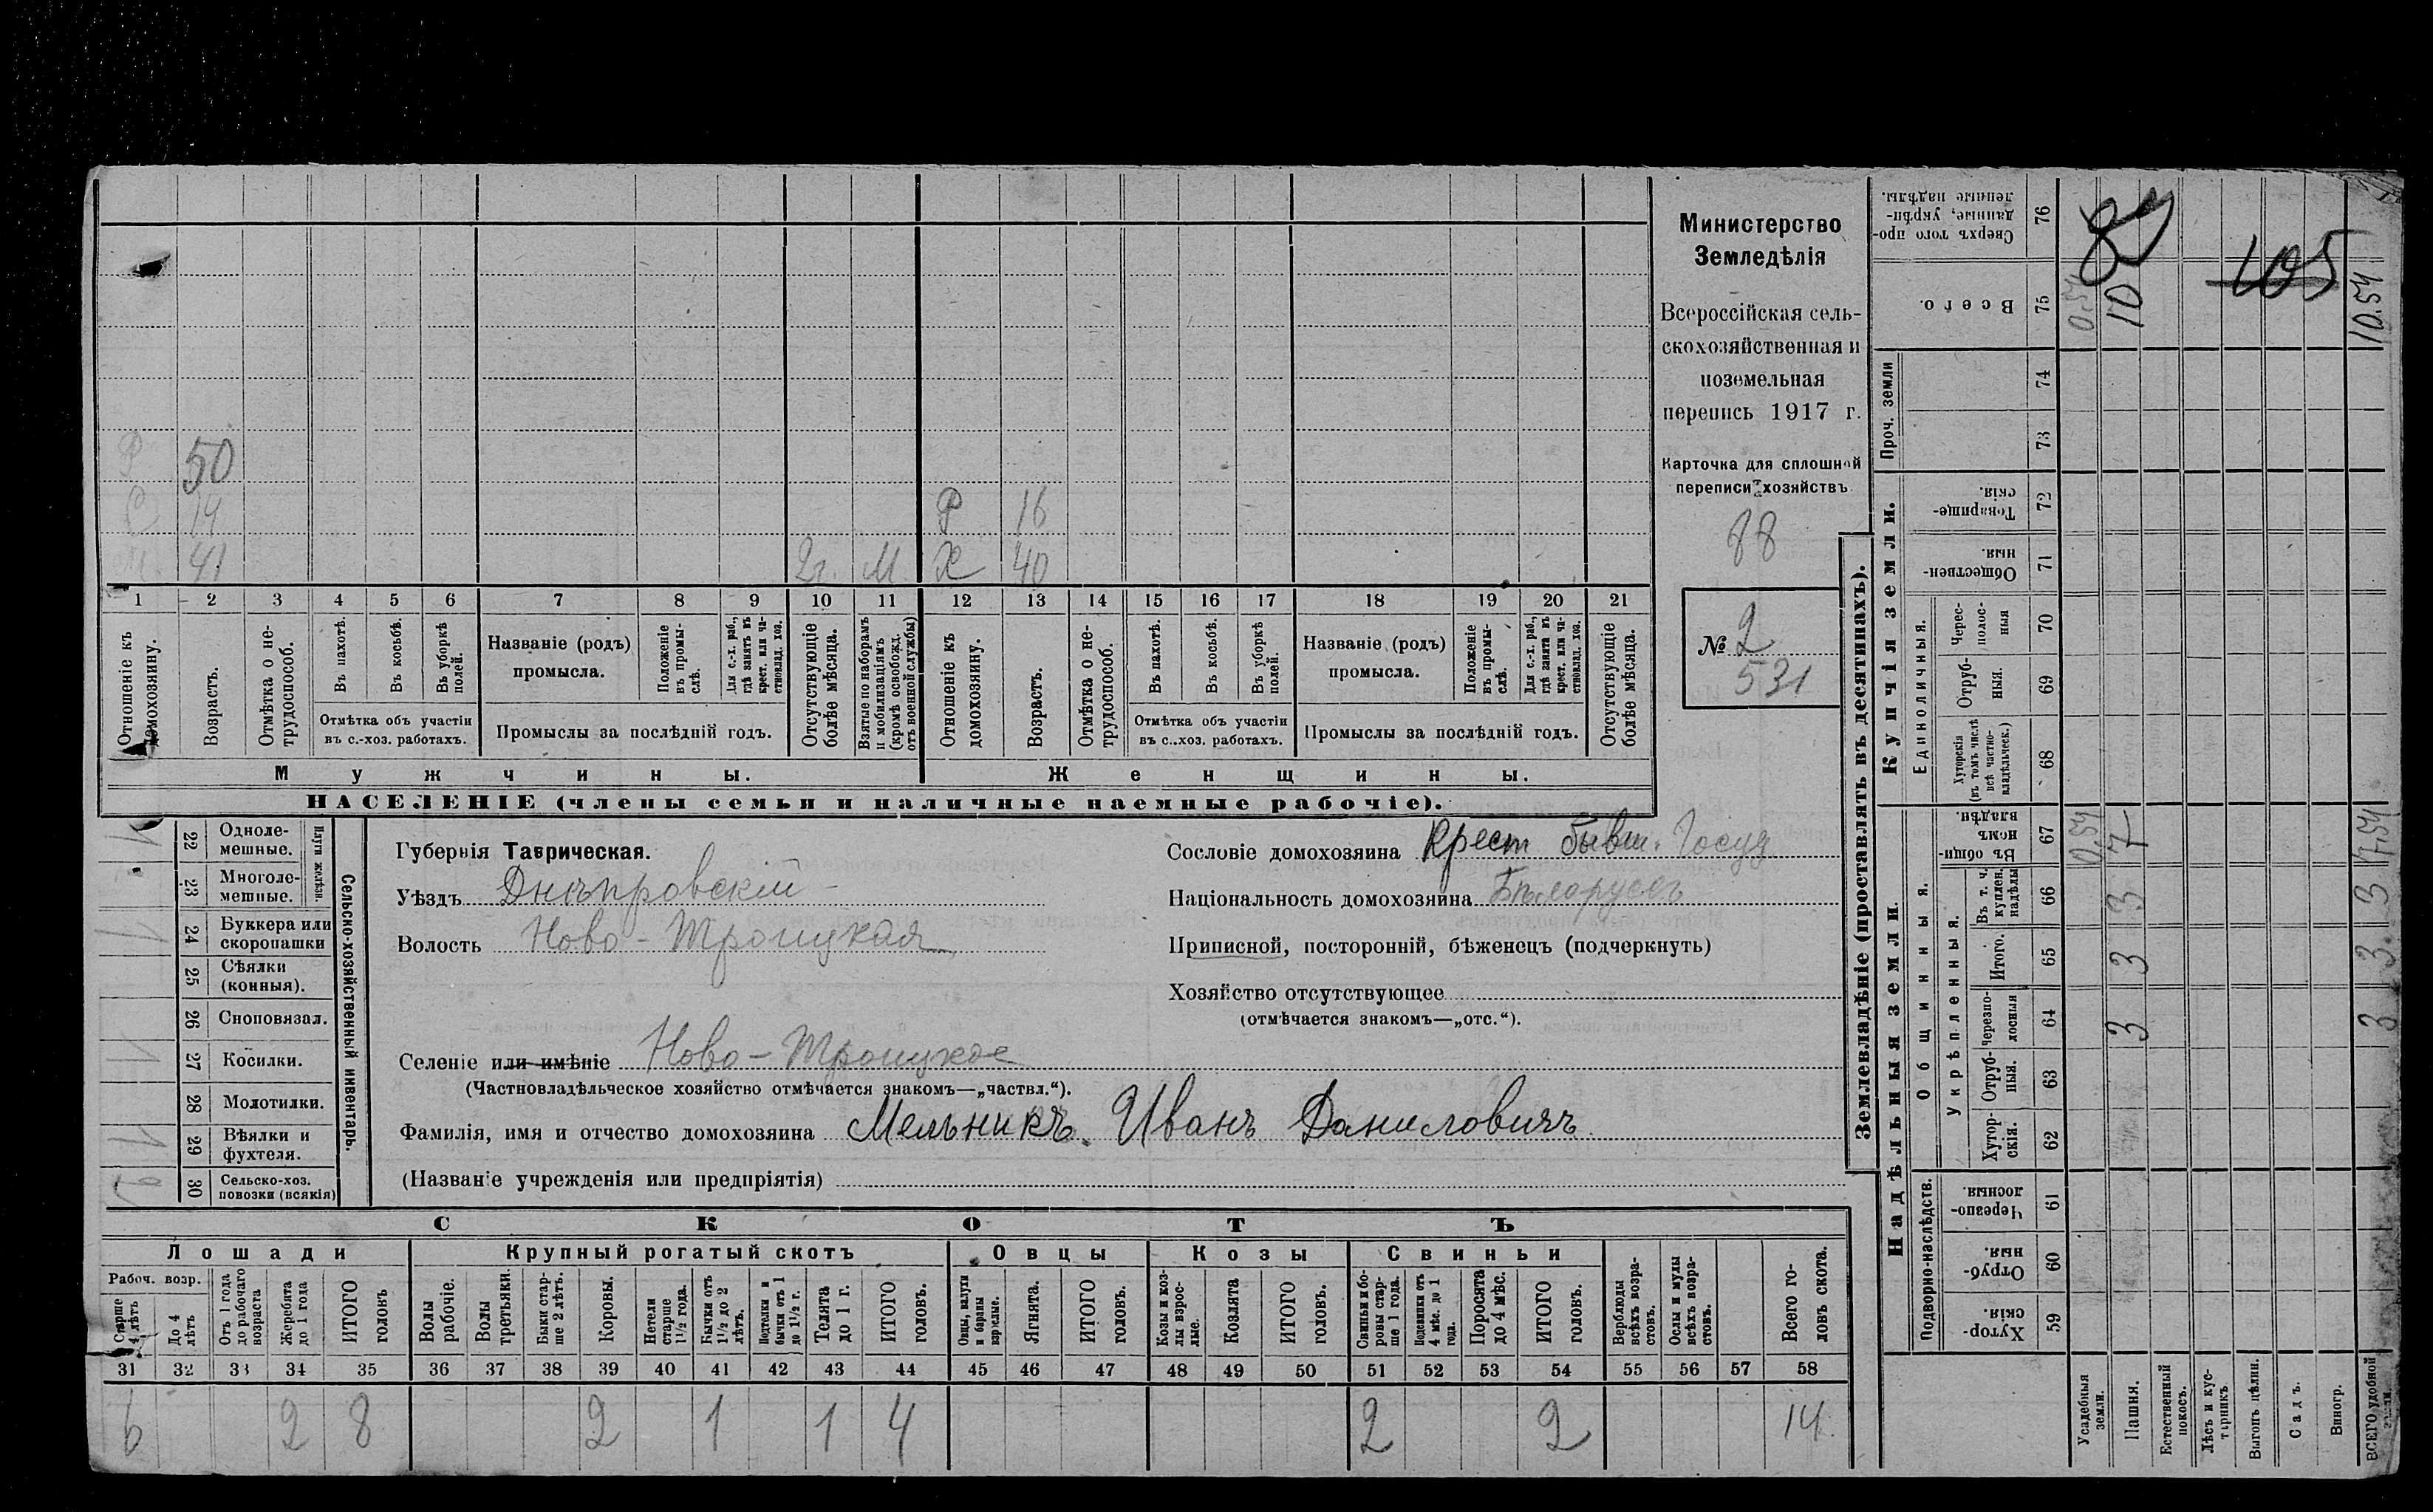 Министерство
Земледѣлія
Всероссійская сель-
скохозяйственная и
поземельная
перепись 1917 г.
Карточка для сплошной
переписи хозяйствъ
88
№ 2
531
Р 50
С 14 Р 16
М. 41 2г. М Х 40
1 2 3 4 5 6 7 8 9 10 11 12 13 14 15 16 17 18 19 20 21
Отношеніе къ домохозяину.
Возрастъ.
Отмѣтка о не-трудоспособ.
Въ пахотѣ.
Въ косьбѣ.
Въ уборкѣ полей.
Отмѣтка объ участіи въ с.-хоз. работахъ.
Названіе (родъ) промысла.
Положеніе въ промы-слѣ.
Для с.-х. раб., гдѣ занятъ въ крест. или ча-стновлад. хоз.
Промыслы за послѣдній годъ.
Отсутствующіе болѣе мѣсяца.
Взятые по наборамъ и мобилизаціямъ (кромѣ освобожд. отъ военной службы)
Отношеніе къ домохозяину.
Возрастъ.
Отмѣтка о не-трудоспособ.
Въ пахотѣ.
Въ косьбѣ.
Въ уборкѣ полей.
Отмѣтка объ участіи въ с..хоз. работахъ.
Названіе (родъ) промысла.
Положеніе въ промы-слѣ.
Для с.-х. раб., гдѣ занята въ крест. или ча-стновлад. хоз.
Промыслы за послѣдній годъ.
Отсутствующіе болѣе мѣсяца.
Мужчины. Женщины.
НАСЕЛЕНІЕ (члены семьи и наличные наемные рабочіе).
Сельско-хозяйственный инвентарь.
Плуги желѣзн.
22 Одноле-мешные. 1
23 Многоле-мешные.
24 Буккера или скоропашки 1
25 Сѣялки (конныя).
26 Сноповязал.
27 Косилки. 1
28 Молотилки.
29 Вѣялки и фухтеля. 1
30 Сельско-хоз. повозки (всякія) 2
Губернія Таврическая.
Уѣздъ Днѣпровскій
Волость Ново-Троицкая
Селеніе или имѣніе Ново-Троицкое
(Частновладѣльческое хозяйство отмѣчается знакомъ—„частвл.“).
Фамилія, имя и отчество домохозяина Мельникъ. Иванъ Даниловичъ
(Названіе учрежденія или предпріятія)
Сословіе домохозяина Крест бывш. Госуд
Національность домохозяина Бѣларусъ
Приписной, посторонній, бѣженецъ (подчеркнуть)
Хозяйство отсутствующее
(отмѣчается знакомъ—„отс.“).
СКОТЪ
Лошади Крупный рогатый скотъ Овцы Козы Свиньи
Рабоч. возр.
Старше 4 лѣтъ
До 4 лѣтъ
Отъ 1 года до рабочаго возраста
Жеребята до 1 года
ИТОГО головъ
Волы рабочіе.
Волы третьяки.
Быки стар-ше 2 лѣтъ.
Коровы.
Нетели старше 1½ года.
Бычки отъ 1½ до 2 лѣтъ.
Подтелки и бычки отъ 1 до 1½ г.
Телята до 1 г.
ИТОГО головъ.
Овцы, валухи и бараны взрослые.
Ягнята.
ИТОГО головъ.
Козы и коз-лы взрос-лые.
Козлята
ИТОГО головъ.
Свиньи и бо-ровы стар-ше 1 года.
Подсвинки отъ 4 мѣс. до 1 года.
Поросята до 4 мѣс.
ИТОГО головъ.
Верблюды всѣхъ возра-стовъ.
Ослы и мулы всѣхъ возра-стовъ.
Всего го-ловъ скота.
31 32 33 34 35 36 37 38 39 40 41 42 43 44 45 46 47 48 49 50 51 52 53 54 55 56 57 58
6 2 8 2 1 1 4 2 2 14
Землевладѣніе (проставлять въ десятинахъ).
Надѣльныя земли.
Купчія земли.
Проч. земли
Подворно-наслѣдств.
Общинныя.
Укрѣпленныя.
Единоличныя.
59 Хутор-скія.
60 Отруб-ныя.
61 Черезпо-лосныя.
62 Хутор-скія.
63 Отруб-ныя.
64 черезпо-лосныя 3 3
65 Итого. 3 3.
66 Въ т. ч. куплен. надѣлы 3 3
67 Въ общи-номъ владѣн. 0.54 7 7.54
68 Хуторскія (въ томъ числѣ всѣ частно-владѣльческ.)
69 Отруб-ныя.
70 Черес-полос-ныя
71 Обществен-ныя.
72 Товарище-скія.
73
74
75 Всего. 0.54 10 10.54
76 Сверхъ того про-данные, укрѣп-ленные надѣлы.
89
105
Усадебныя земли.
Пашня.
Естественный покосъ.
Лѣсъ и кус-тарникъ
Выгонъ цѣлин.
Садъ.
Виногр.
ВСЕГО удобной